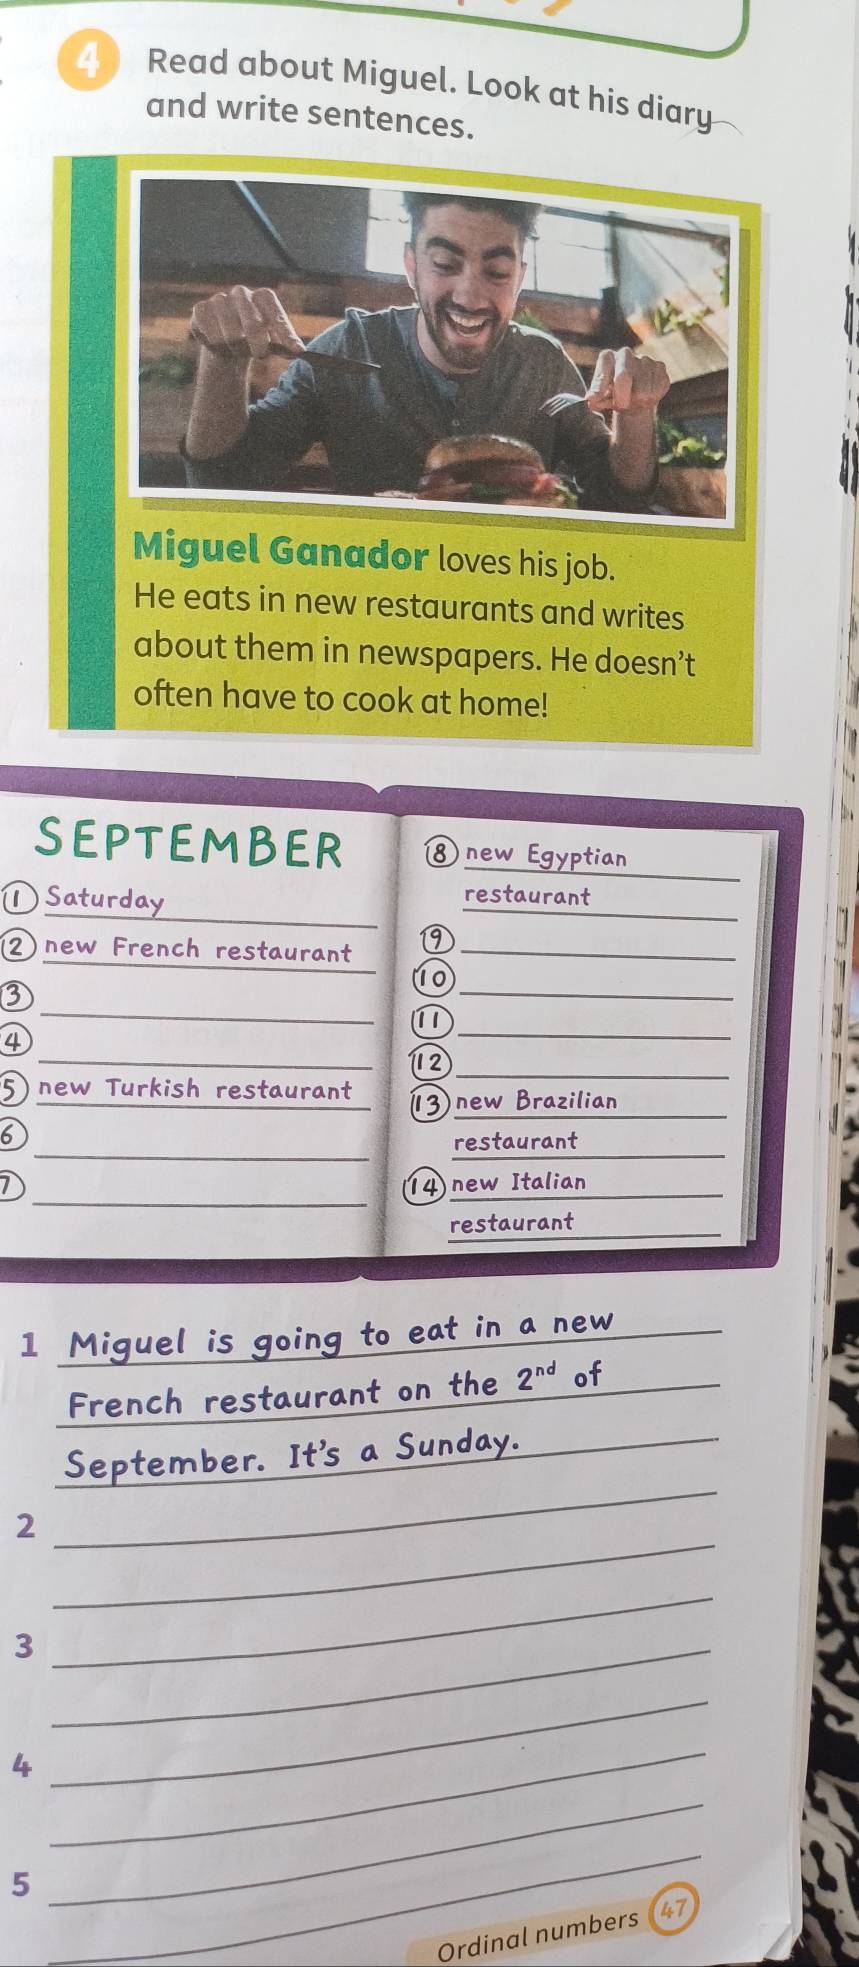 4 Read about Miguel. Look at his diary
and write sentences.
Miguel Ganador loves his job.
He eats in new restaurants and writes
about them in newspapers. He doesn't
often have to cook at home!
SEPTEMBER
1 Saturday
2 new French restaurant
3
4
5 new Turkish restaurant
6
7
8 new Egyptian
restaurant
9
10
11
12
13 new Brazilian
restaurant
14 new Italian
restaurant
1 Miguel is going to eat in a new
French restaurant on the 2nd of
September. It's a Sunday.
2
3
4
5
Ordinal numbers 47